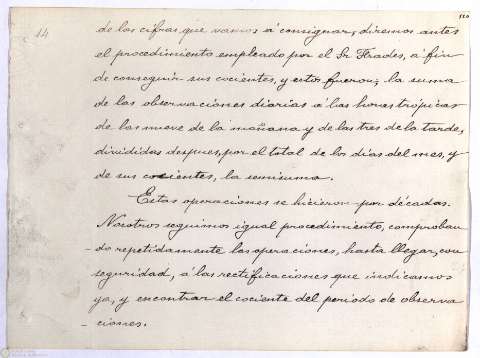 14
de las cifras que vamos á consignar, diremos antes
el procedimiento empleado por el Sr Frades, á fin
de conseguir sus cocientes, y estos fueron; la suma
de las observaciones diarias á las horas tropicas
de las nueve de la mañana y de las tres de la tarde,
divididas despues, por el total de los dias del mes, y
de sus cocientes, la semisuma.
Estas operaciones se hicieron por décadas.
Nosotros seguimos igual procedimiento, comproban-
-do repetidamente las operaciones, hasta llegar, con
seguridad, á las rectificaciones que indicamos
ya, y encontrar el cociente del periodo de observa
-ciones.